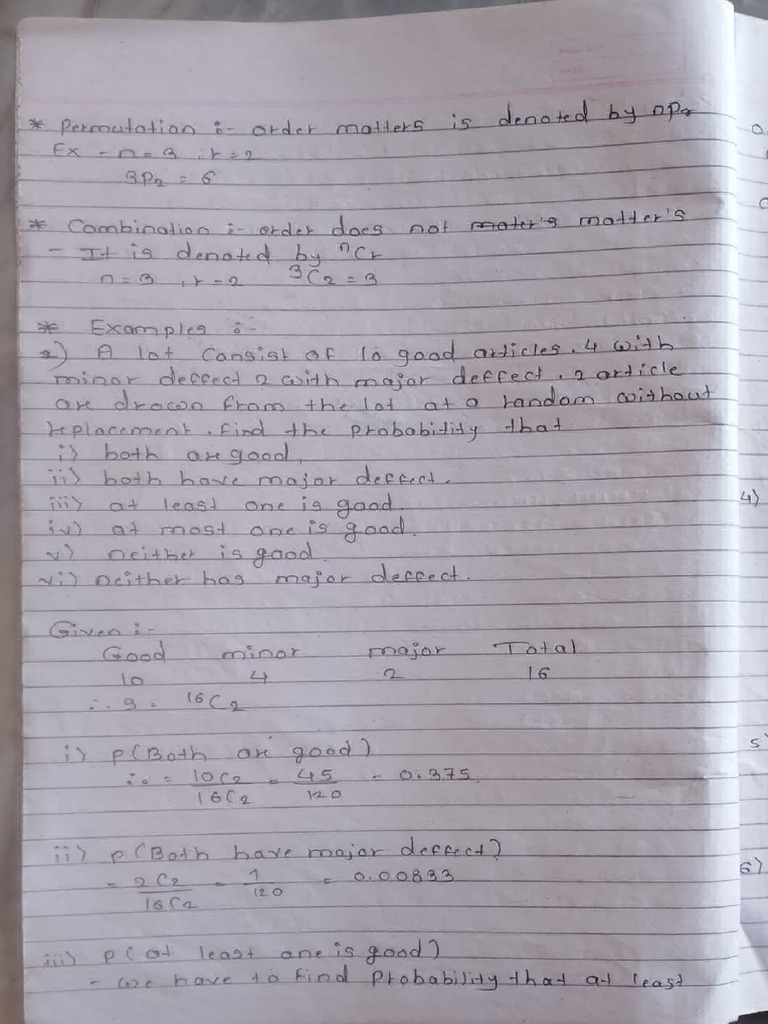 * Permutation :- order matters is denoted by nPr
Ex - n = 3 , r = 2
3P2 = 6
* Combination :- order does not mater's matter's
- It is denoted by nCr
n = 3 , r = 2 3C2 = 3
* Examples :-
2) A lot consist of 10 good articles. 4 with
minor deffect 2 with major deffect. 2 article
are drawn from the lot at a random without
replacement. find the probability that
i) both are good,
ii) both have major deffect.
iii) at least one is good.
iv) at most one is good.
v) neither is good
vi) neither has major deffect.
Given :-
Good minor major Total
10 4 2 16
∴ S = 16C2
i) P(Both are good)
∴ = 10C2 / 16C2 = 45 / 120 = 0.375.
ii) P(Both have major deffect)
= 2C2 / 16C2 = 1 / 120 = 0.00833
iii) P(at least one is good)
- we have to find Probability that at least
4)
5)
6)